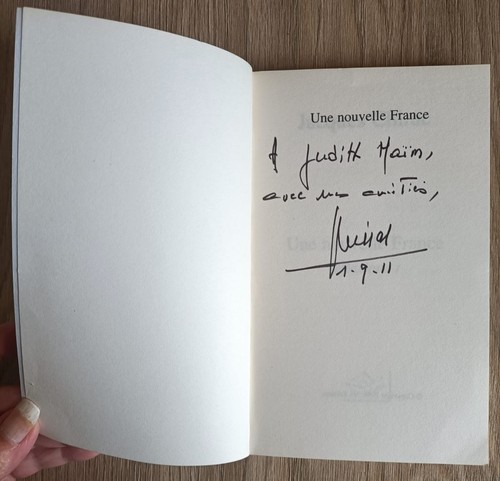 Une nouvelle France
A Judith Haïm,
avec mes amitiés,
1-9-11